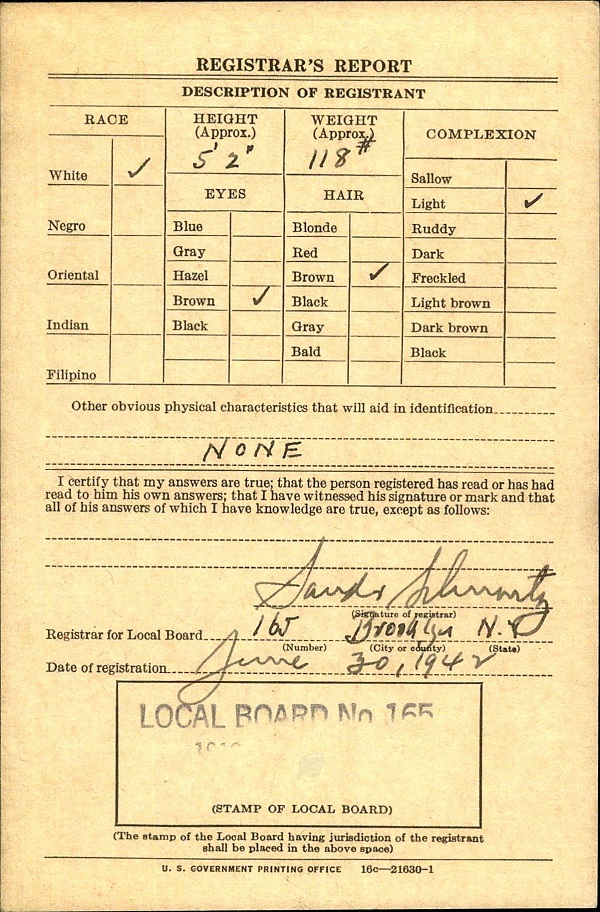 REGISTRAR'S REPORT
DESCRIPTION OF REGISTRANT
RACE
HEIGHT
(Approx.)
WEIGHT
(Approx.)
COMPLEXION
5' 2"
118#
White ✓
Sallow
EYES
HAIR
Light ✓
Negro
Blue
Blonde
Ruddy
Gray
Red
Dark
Oriental
Hazel
Brown ✓
Freckled
Brown ✓
Black
Light brown
Indian
Black
Gray
Dark brown
Bald
Black
Filipino
Other obvious physical characteristics that will aid in identification
NONE
I certify that my answers are true; that the person registered has read or has had
read to him his own answers; that I have witnessed his signature or mark and that
all of his answers of which I have knowledge are true, except as follows:
(Signature of registrar)
Registrar for Local Board 165 Brooklyn N.Y
(Number) (City or county) (State)
Date of registration June 30, 1942
LOCAL BOARD No 165
(STAMP OF LOCAL BOARD)
(The stamp of the Local Board having jurisdiction of the registrant
shall be placed in the above space)
U. S. GOVERNMENT PRINTING OFFICE 16c—21630-1